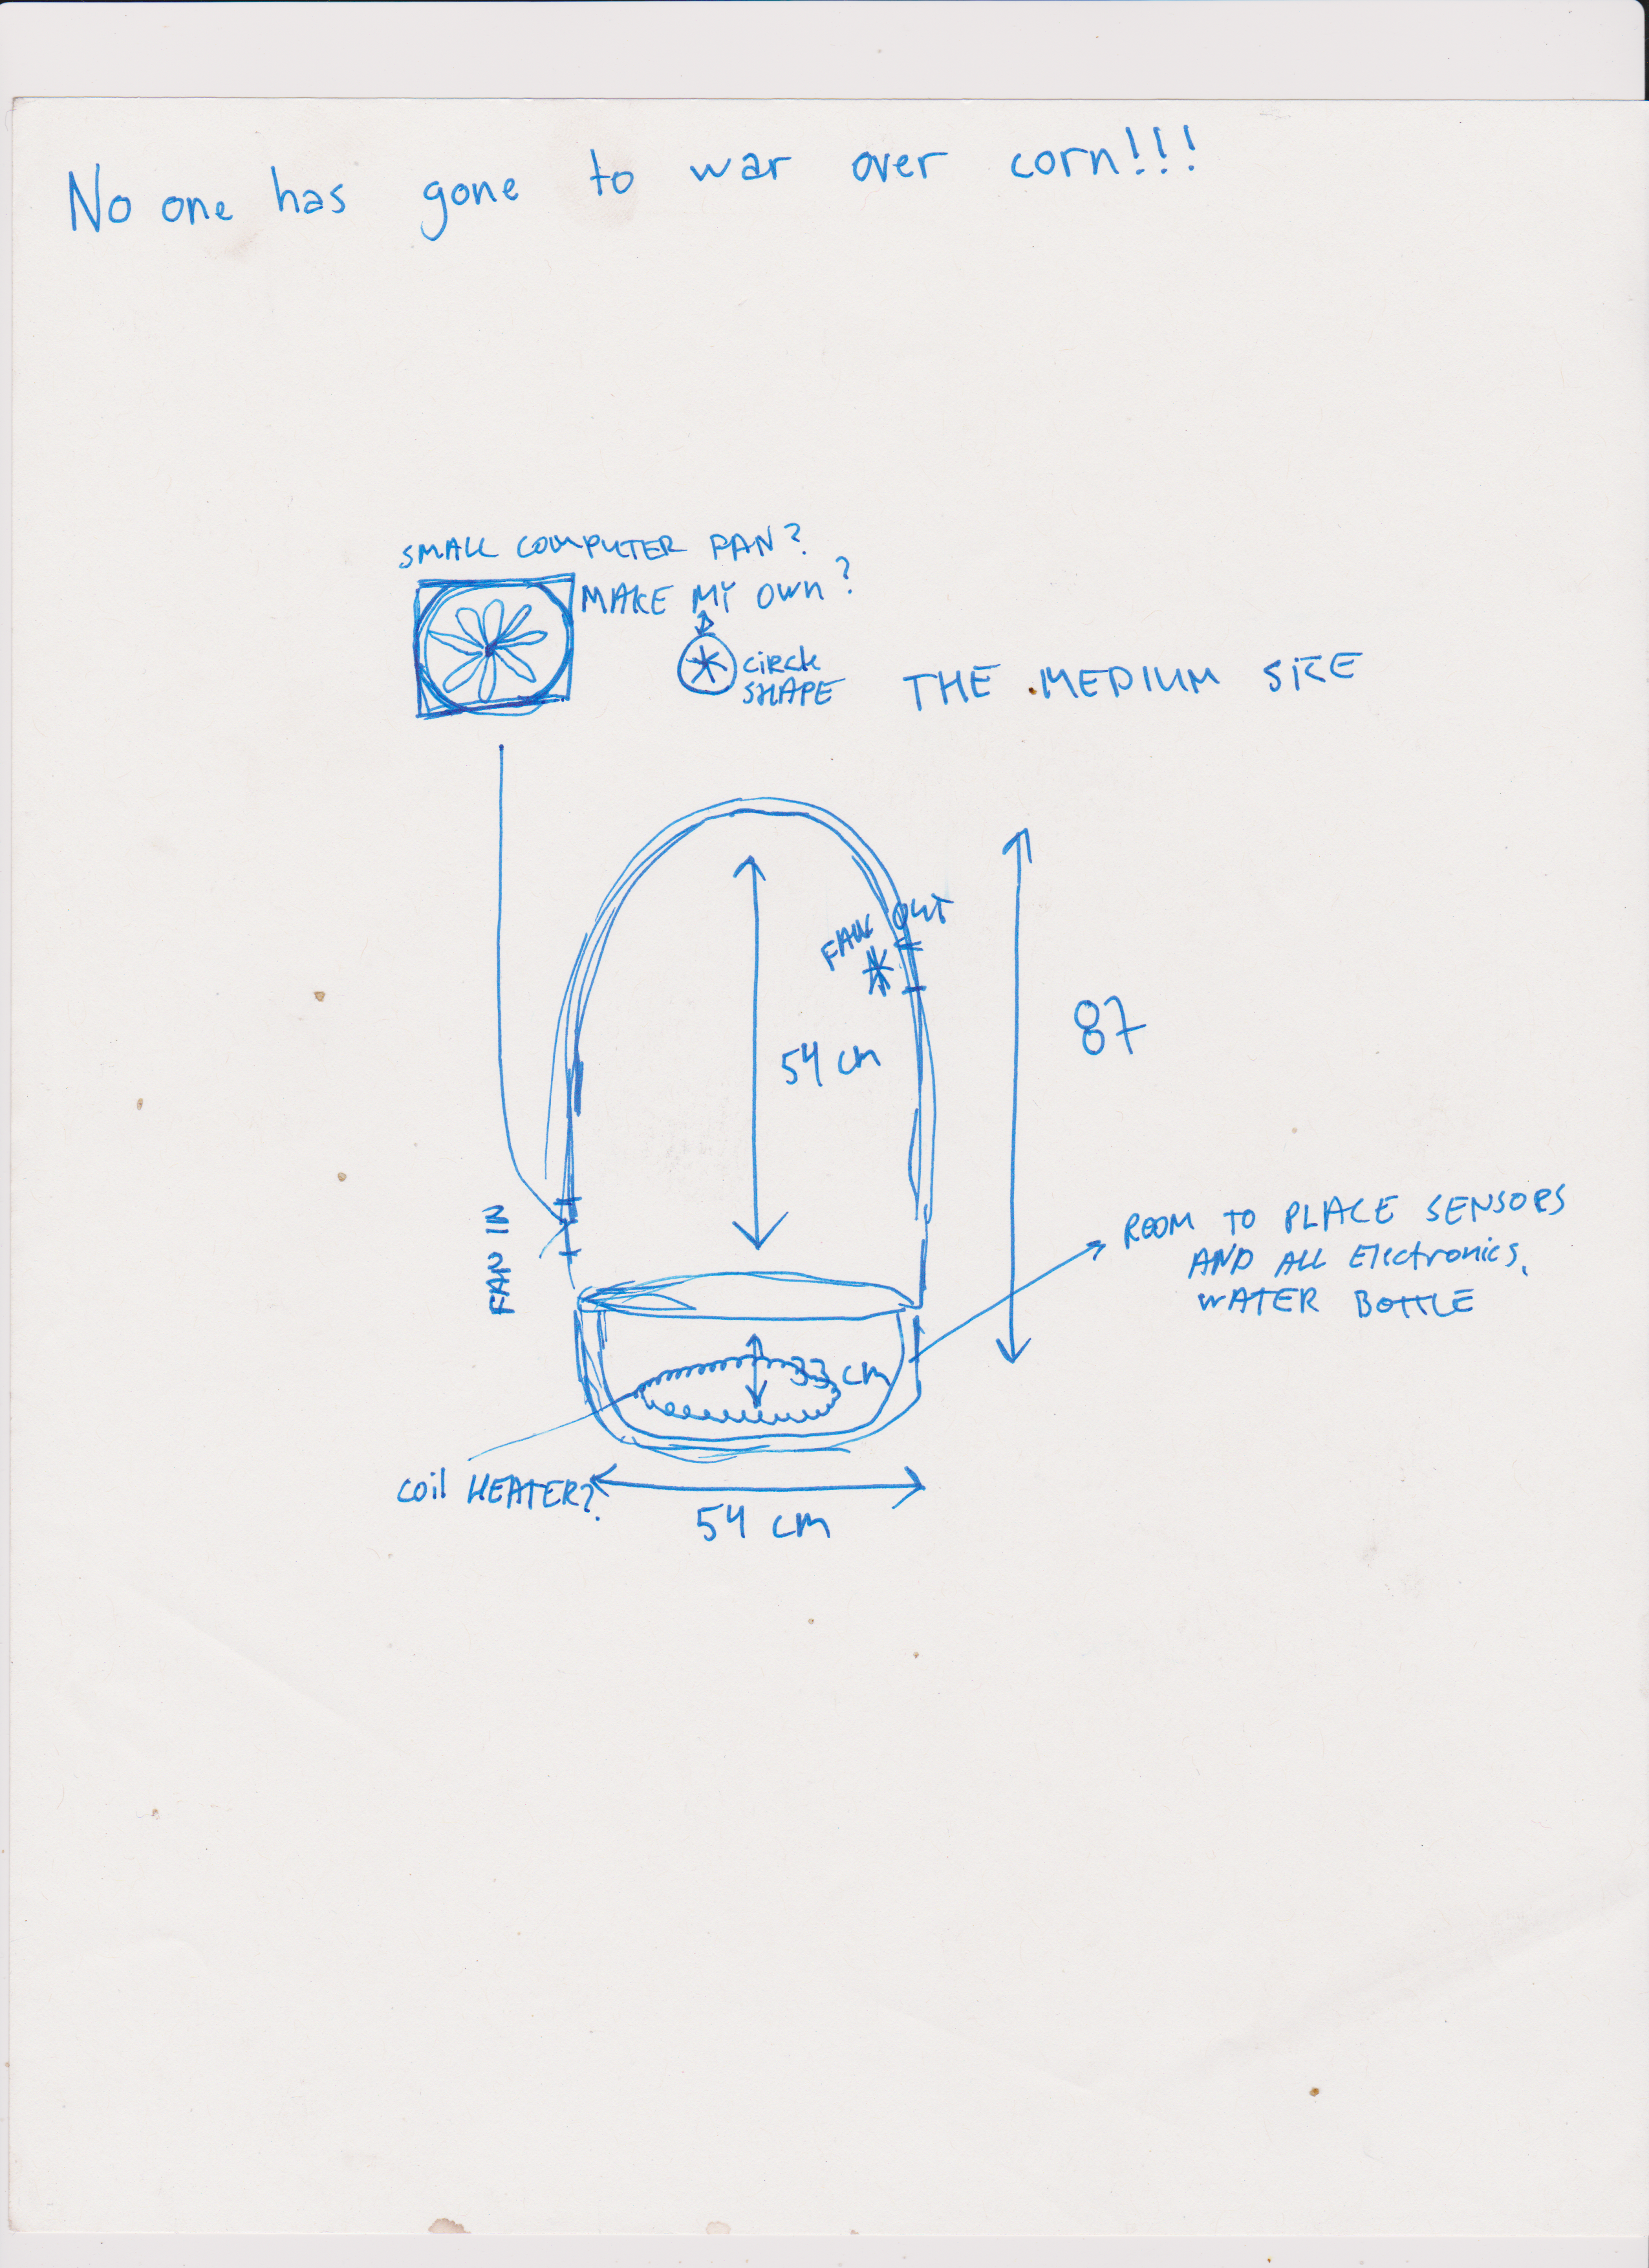 No one has gone to war over corn!!!
SMALL COMPUTER FAN?
MAKE MY OWN?
CIRCLE
SHAPE
THE MEDIUM SIZE
FAN OUT
54 cm
87
FAN IN
ROOM TO PLACE SENSORS
AND ALL Electronics.
WATER BOTTLE
33 cm
coil HEATER?
54 cm